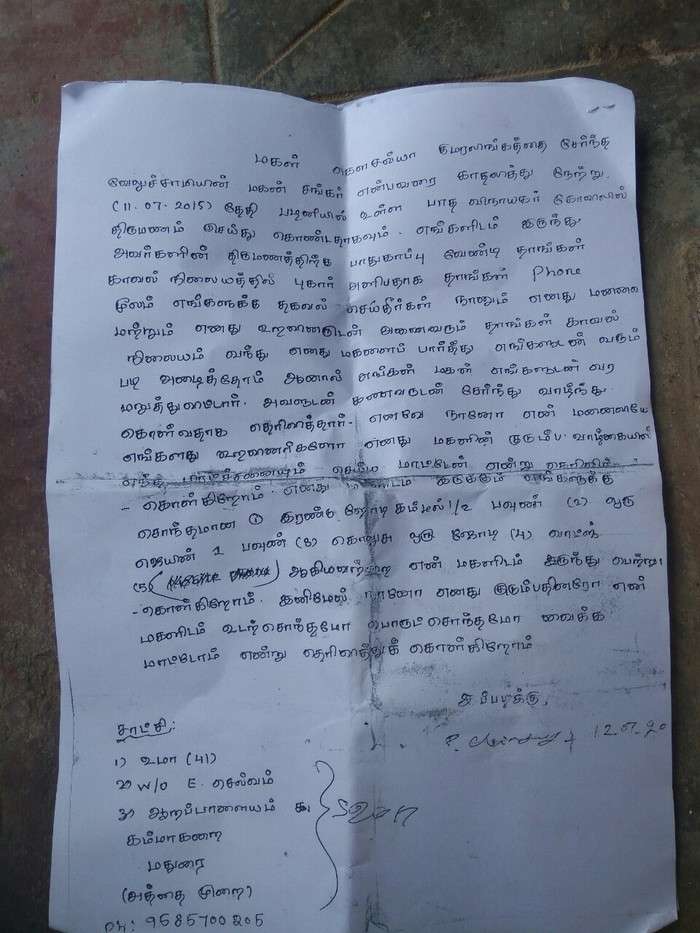 மகள் கௌசல்யா குமரலிங்கத்தை சேர்ந்த
வேலுச்சாமியின் மகன் சங்கர் என்பவரை காதலித்து நேற்று.
(11.07.2015) தேதி பழனியில் உள்ள பாத விநாயகர் கோவிலில்
திருமணம் செய்து கொண்டதாகவும். எங்களிடம் இருந்து
அவர்களின் திருமணத்திற்கு பாதுகாப்பு வேண்டி தாங்கள்
காவல் நிலையத்தில் புகார் அளிபதாக தாங்கள் Phone
மூலம் எங்களுக்கு தகவல் செய்தீர்கள் நானும் எனது மனைவி
மற்றும் எனது உறவினருடன் அனைவரும் தாங்கள் காவல்
நிலையம் வந்து எனது மகளைப் பார்த்து எங்களுடன் வரும்
படி அழைத்தோம் ஆனால் எங்கள் மகள் எங்களுடன் வர
மறுத்துவிட்டார். அவளுடன் கணவருடன் சேர்ந்து வாழ்ந்து.
கொள்வதாக தெரிவித்தார். எனவே நானோ என் மனைவியே
எங்களது உறவினர்களோ எனது மகளின் குடும்ப வாழ்கையில்
எந்த பிரச்சனையும் செய்ய மாட்டேன் என்று தெரிவித்
- கொள்கிறோம். எனது இருக்கும் எங்களுக்கு
சொந்தமான ① இரண்டு ஜோடி கம்மல் 1/2 பவுண் (2) ஒரு
செயின் 1 பவுன் (3) கொலுசு ஒரு ஜோடி (4) வாட்ஸ்
(5) ஆகியவற்றை என் மகளிடம் இருந்து பெற்று
-கொள்கிறோம். இனிமேல் நானோ எனது குடும்பத்தினரோ என்
மகளிடம் உடற்சொந்தமோ பொருட்சொந்தமோ வைக்க
மாட்டோம் என்று தெரிவித்துக் கொள்கிறோம்
இப்படிக்கு,
சாட்சி:
1) உமா (41)
2) W/O E. செல்வம்
3) ஆரப்பாளையம்
கம்மாகரை
மதுரை
(அத்தை முறை)
PH: 9585700205